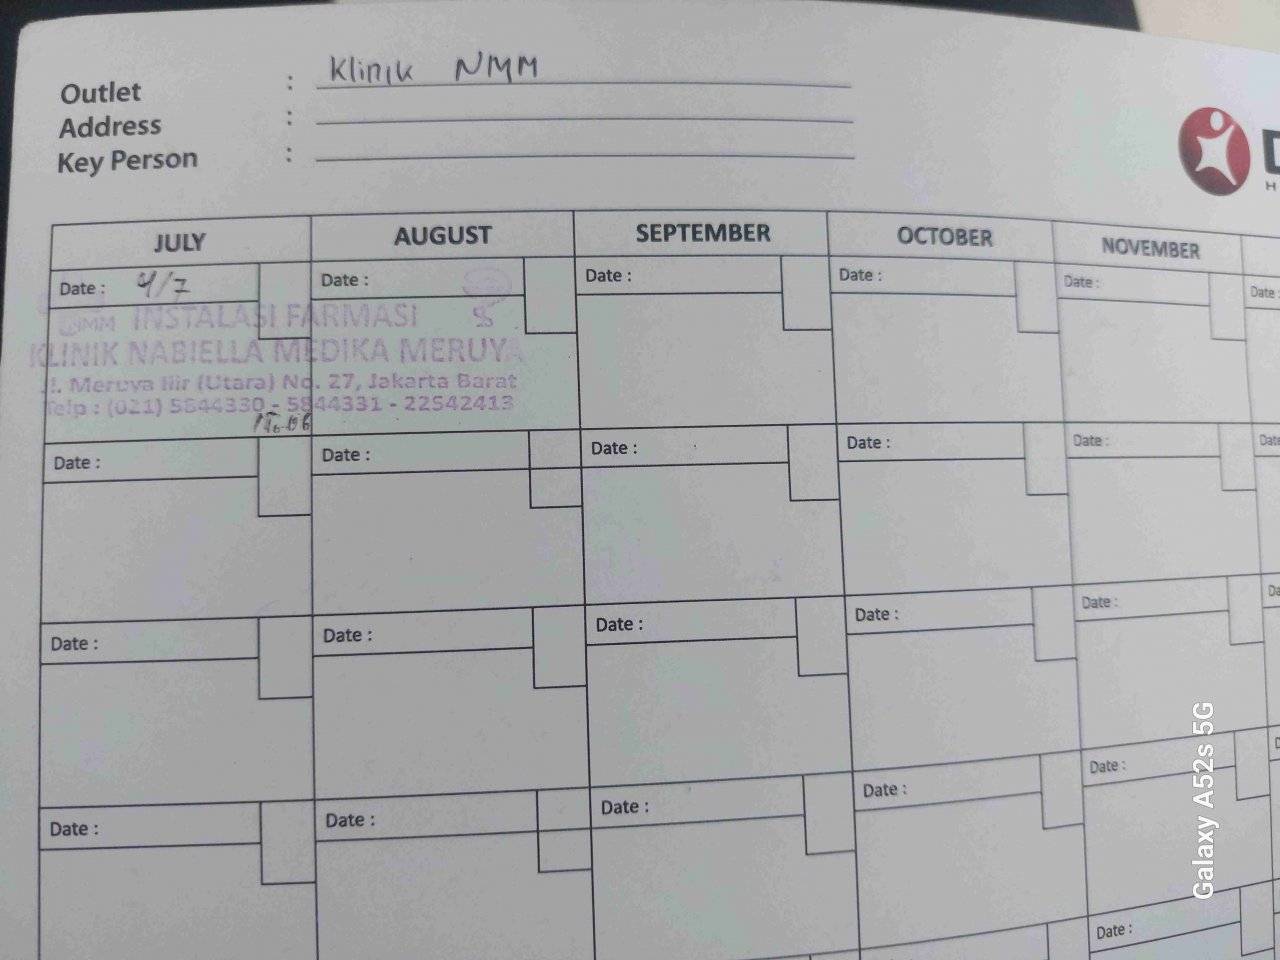 Outlet : Klinik NMM
Address :
Key Person :
JULY AUGUST SEPTEMBER OCTOBER NOVEMBER
Date : 4/7 Date : Date : Date : Date : Date :
NMM INSTALASI FARMASI
KLINIK NABIELLA MEDIKA MERUYA
Jl. Meruya Ilir (Utara) No. 27, Jakarta Barat
Telp : (021) 5844330 - 5844331 - 22542413
Date : Date : Date : Date : Date : Date
Date : Date : Date : Date : Date :
Date : Date : Date : Date : Date :
Date :
Galaxy A52s 5G